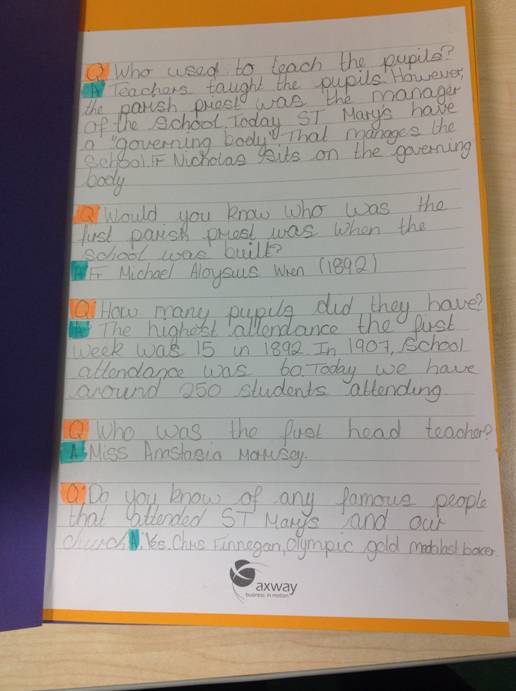 Q Who used to teach the pupils?
A Teachers taught the pupils. However,
the parish priest was the manager
of the school. Today ST Mary's have
a "governing body" That manages the
school. FF Nicholas sits on the governing
body
Q Would you know who was the
first parish priest was when the
school was built?
A FF Michael Aloysius Wren (1892)
Q How many pupils did they have?
A The highest attendance the first
week was 15 in 1892. In 1907, School
attendance was 60. Today we have
around 250 students attending
Q Who was the first head teacher?
A Miss Anastasia
Q Do you know of any famous people
that attended ST Mary's and our
church A. Yes. Chris Finnegan, Olympic gold boxer
axway
business in motion